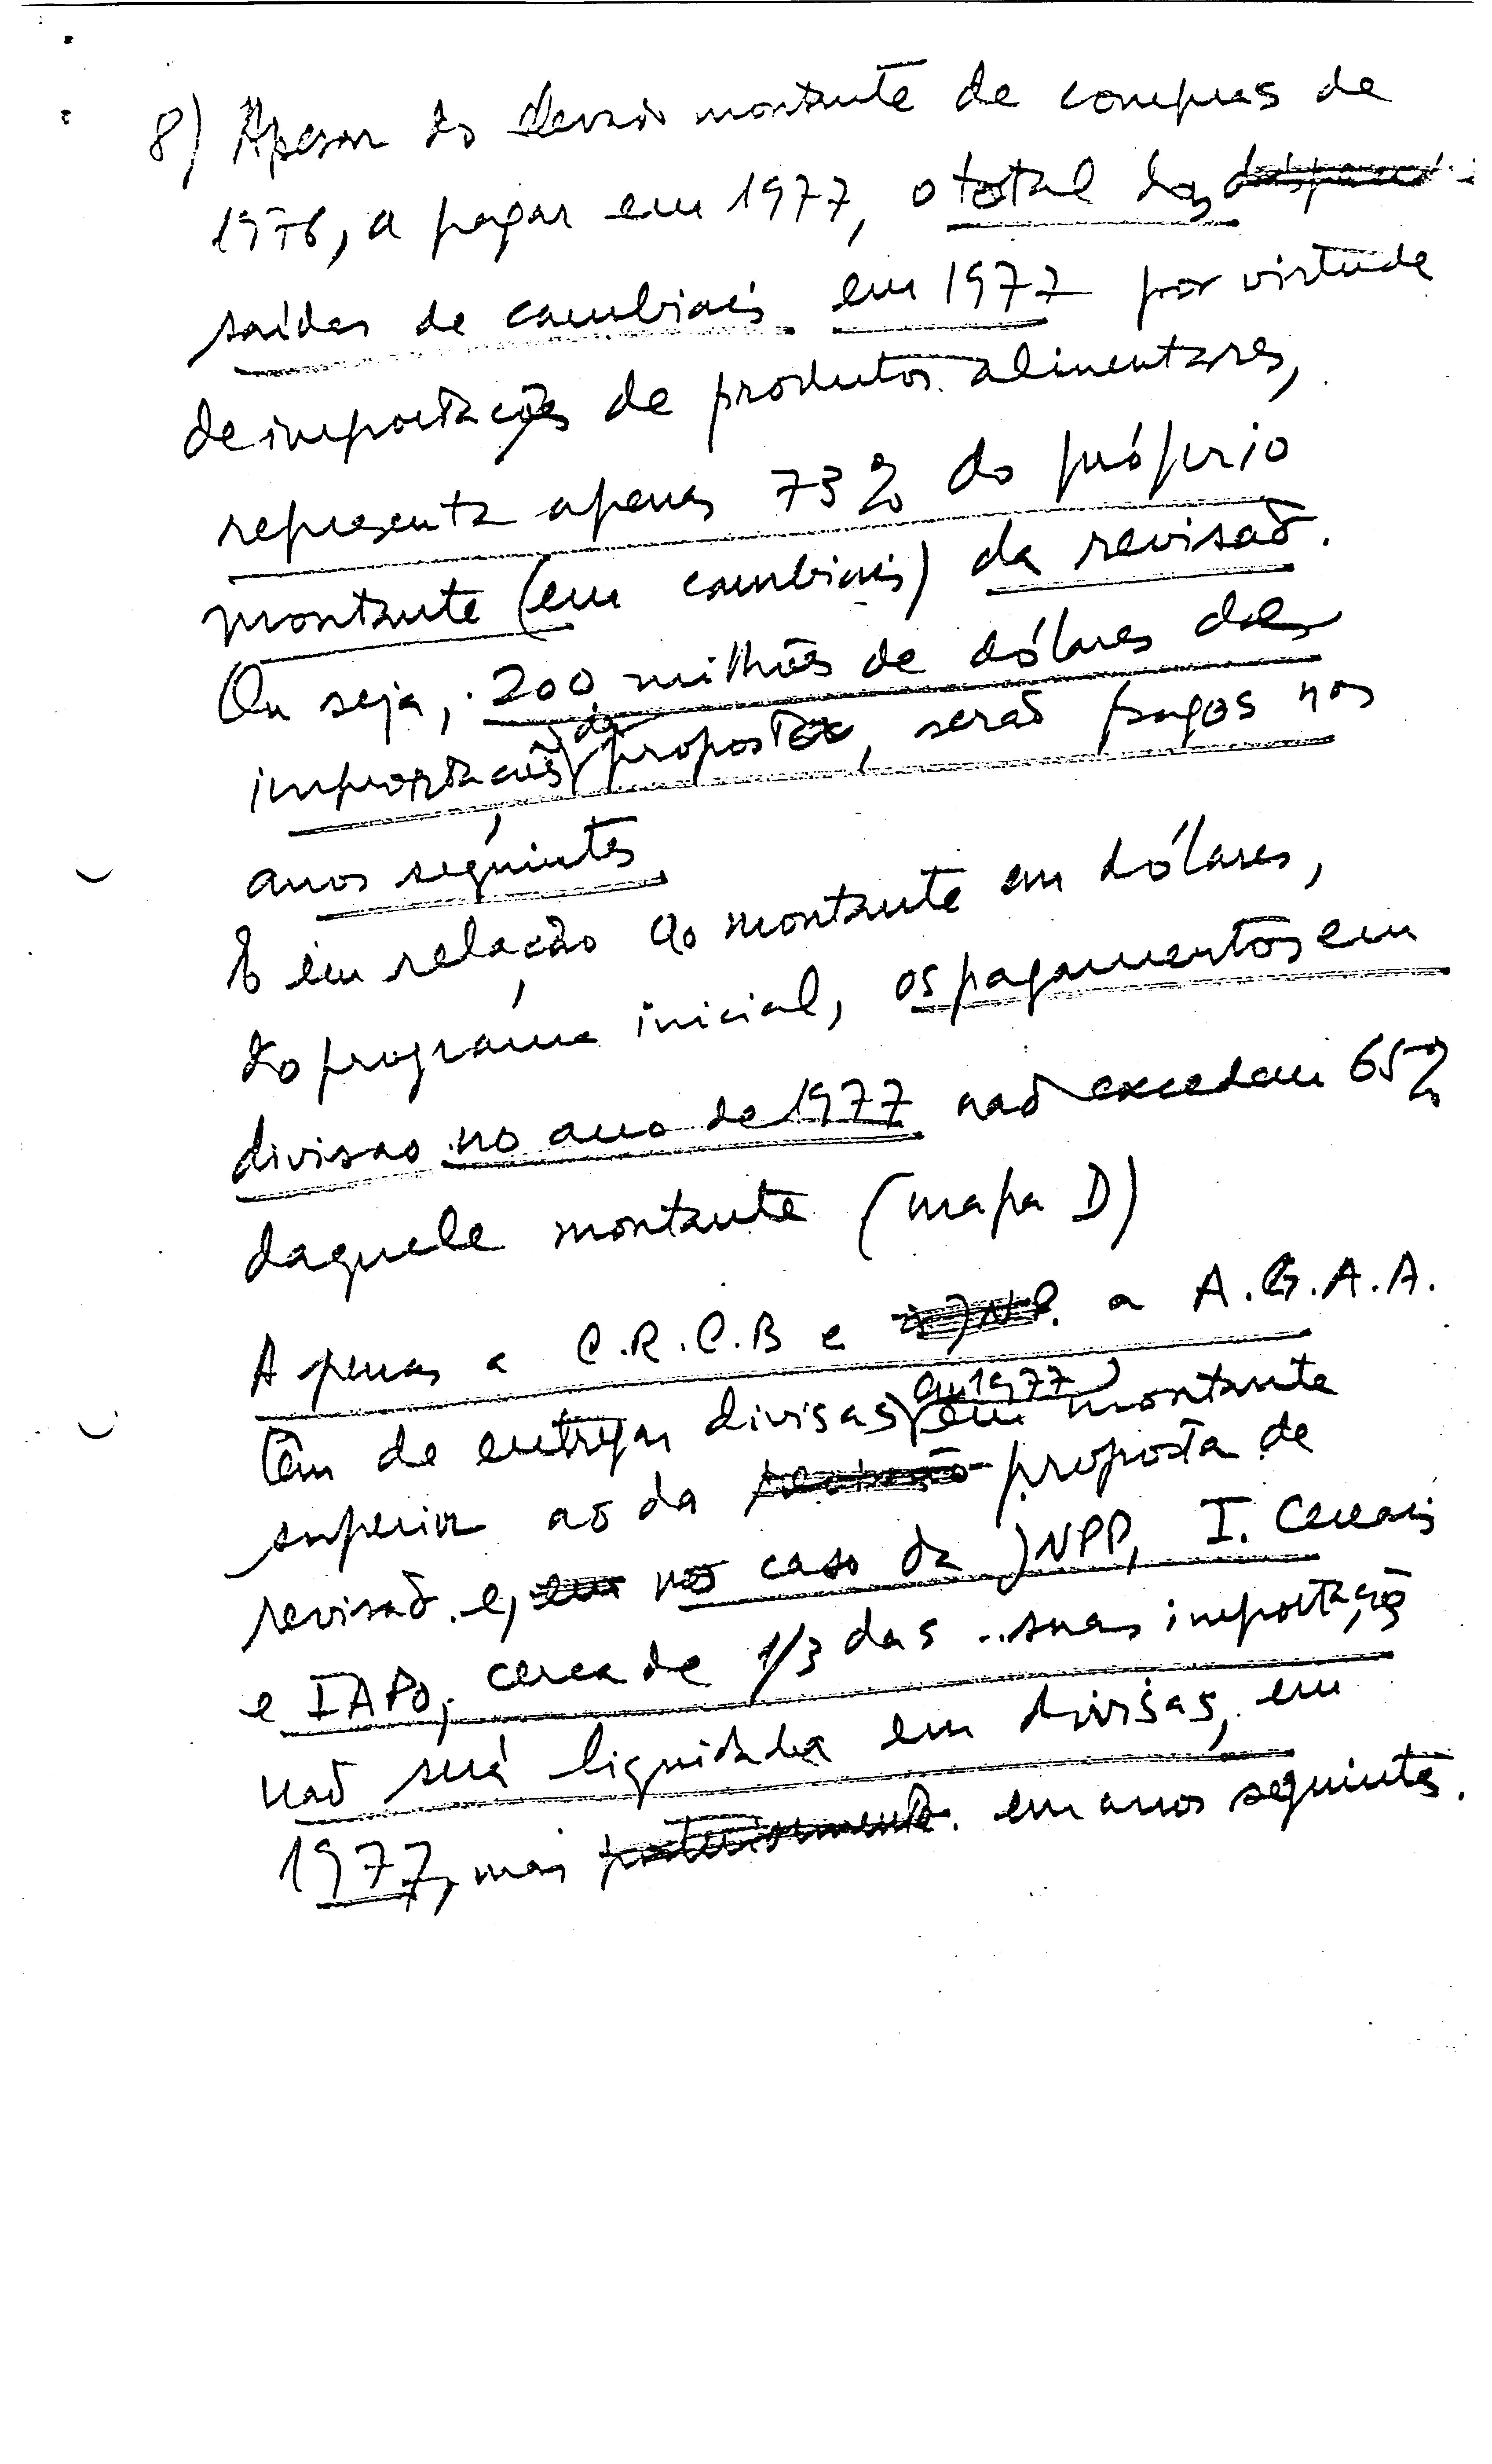 8) Apesar do elevado montante de compras de
1976, a pagar em 1977, o total das
saídas de cambiais em 1977 por virtude
de importações de produtos alimentares,
representa apenas 73% do próprio
montante (em cambiais) da revisão.
Ou seja, 200 milhões de dólares das
importações da proposta, serão pagos nos
anos seguintes
E em relação ao montante em dólares,
do programa inicial, os pagamentos em
divisas no ano de 1977 não excedem 65%
daquele montante (mapa D)
Apenas a C.R.C.B e a A.G.A.A.
têm de entregar divisas (em 1977) em montante
superior ao da proposta de
revisão e, no caso da JNPP, I. Cereais
e IAPO, cerca de 1/3 das suas importações
não será liquidada em divisas, em
1977, mas em anos seguintes.